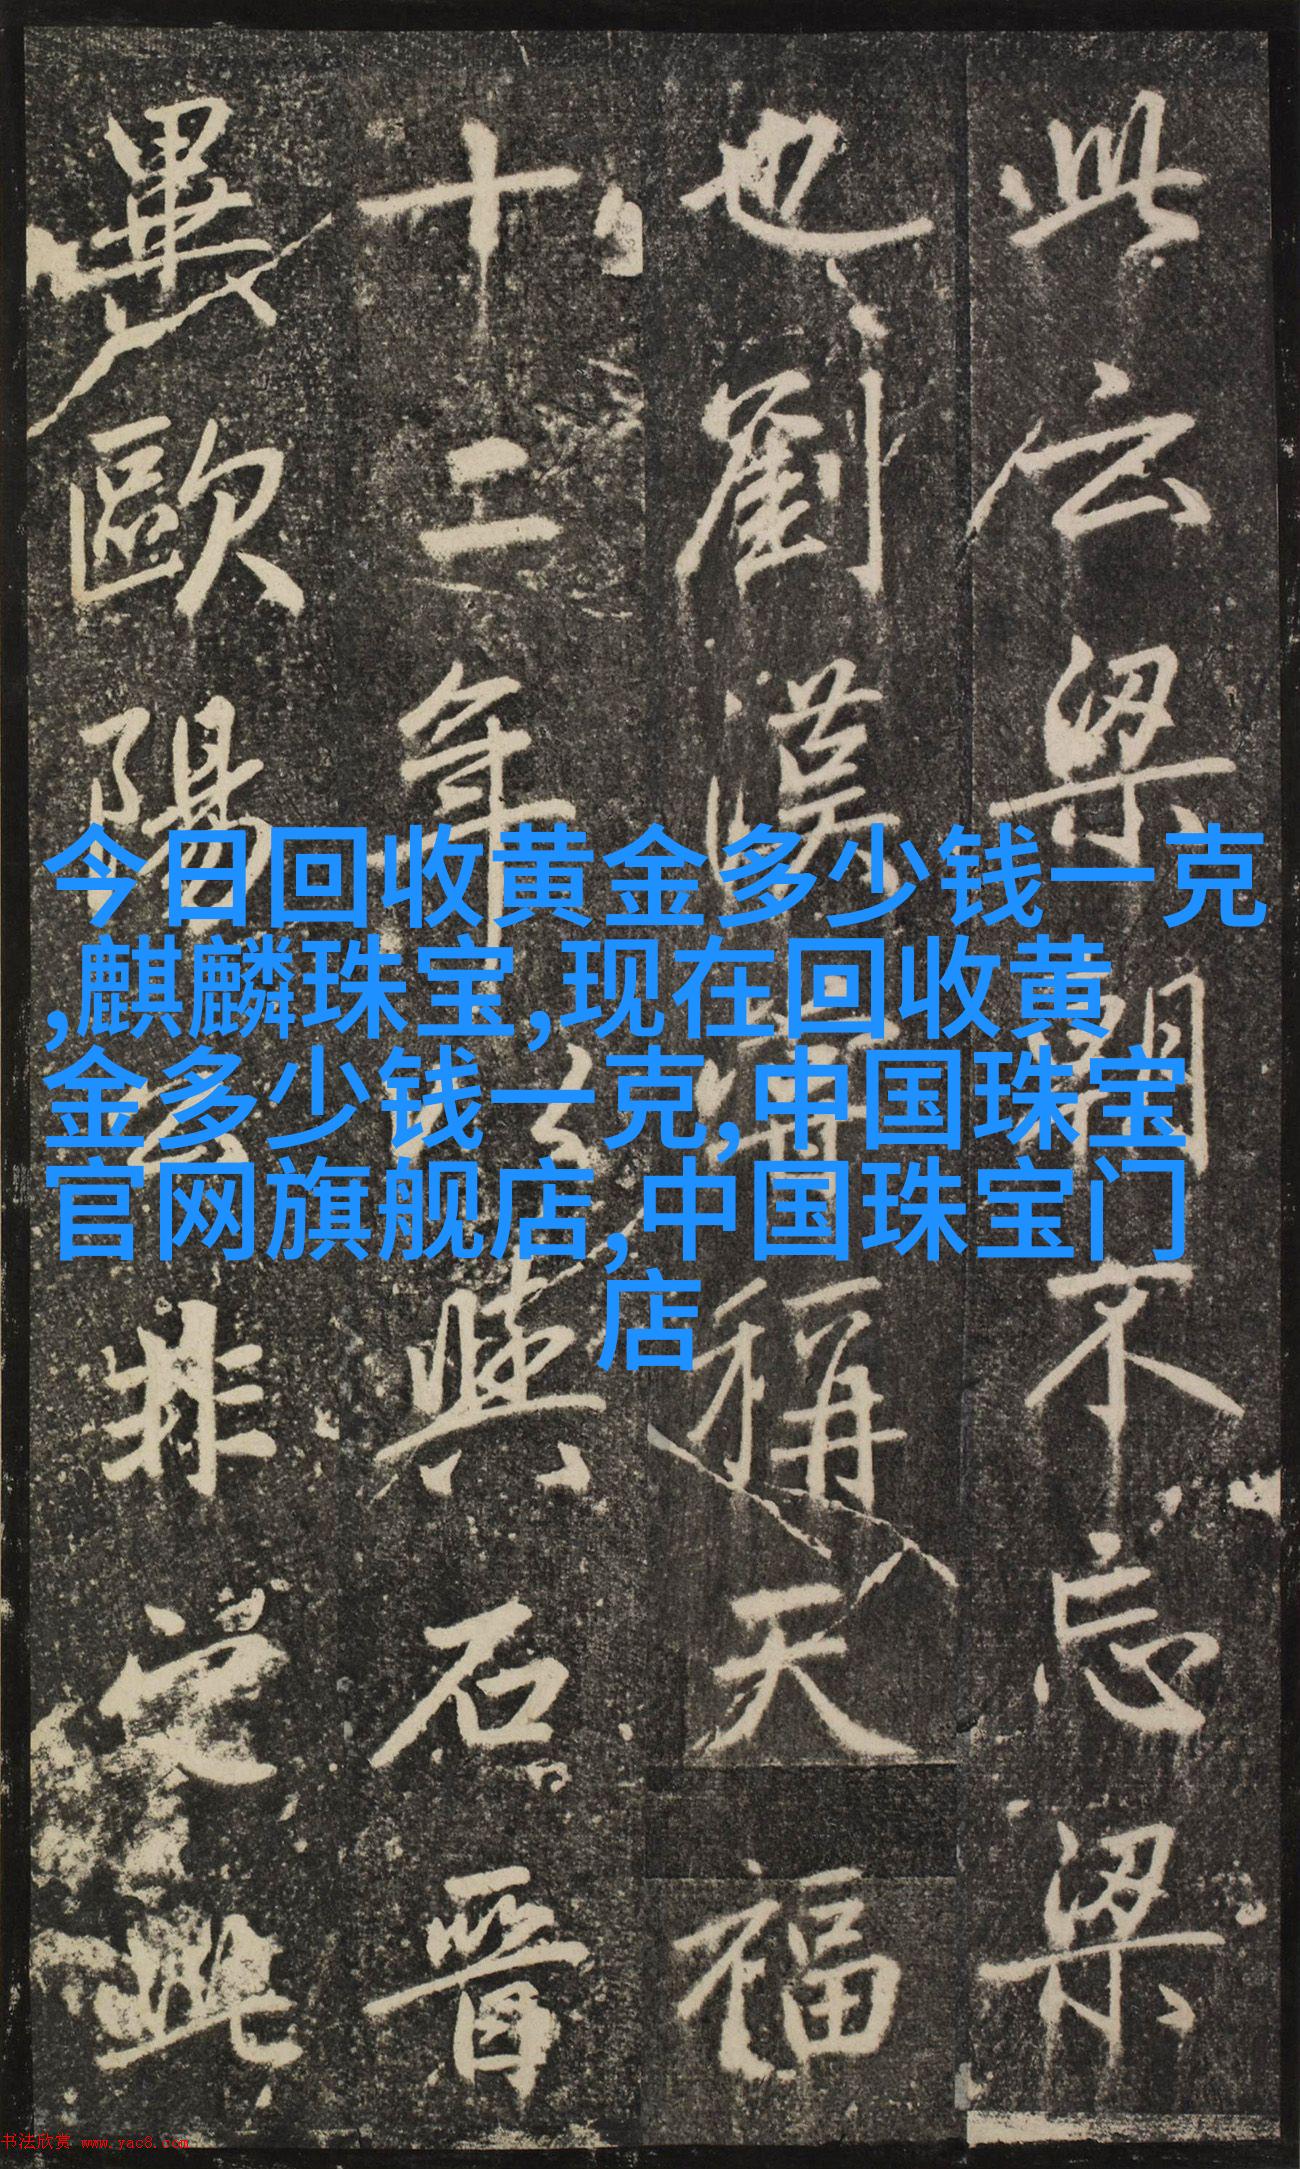 此云梁朝不忘梁
也劉漢稱天福
十二年與石晉
歐陽非此
今日回收黄金多少钱一克
,麒麟珠宝,现在回收黄
金多少钱一克,中国珠宝
官网旗舰店,中国珠宝门
店
书法欣赏 www.yac8.com